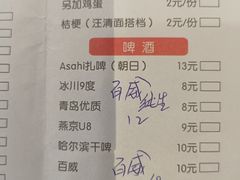 另加鸡蛋 2元/份
桔梗（汪清面搭档） 2元/份
啤酒
Asahi扎啤（朝日） 13元
冰川9度 百威 8元
青岛优质 纯生 8元
燕京U8 12 9元
哈尔滨干啤 10元
百威 百威 10元